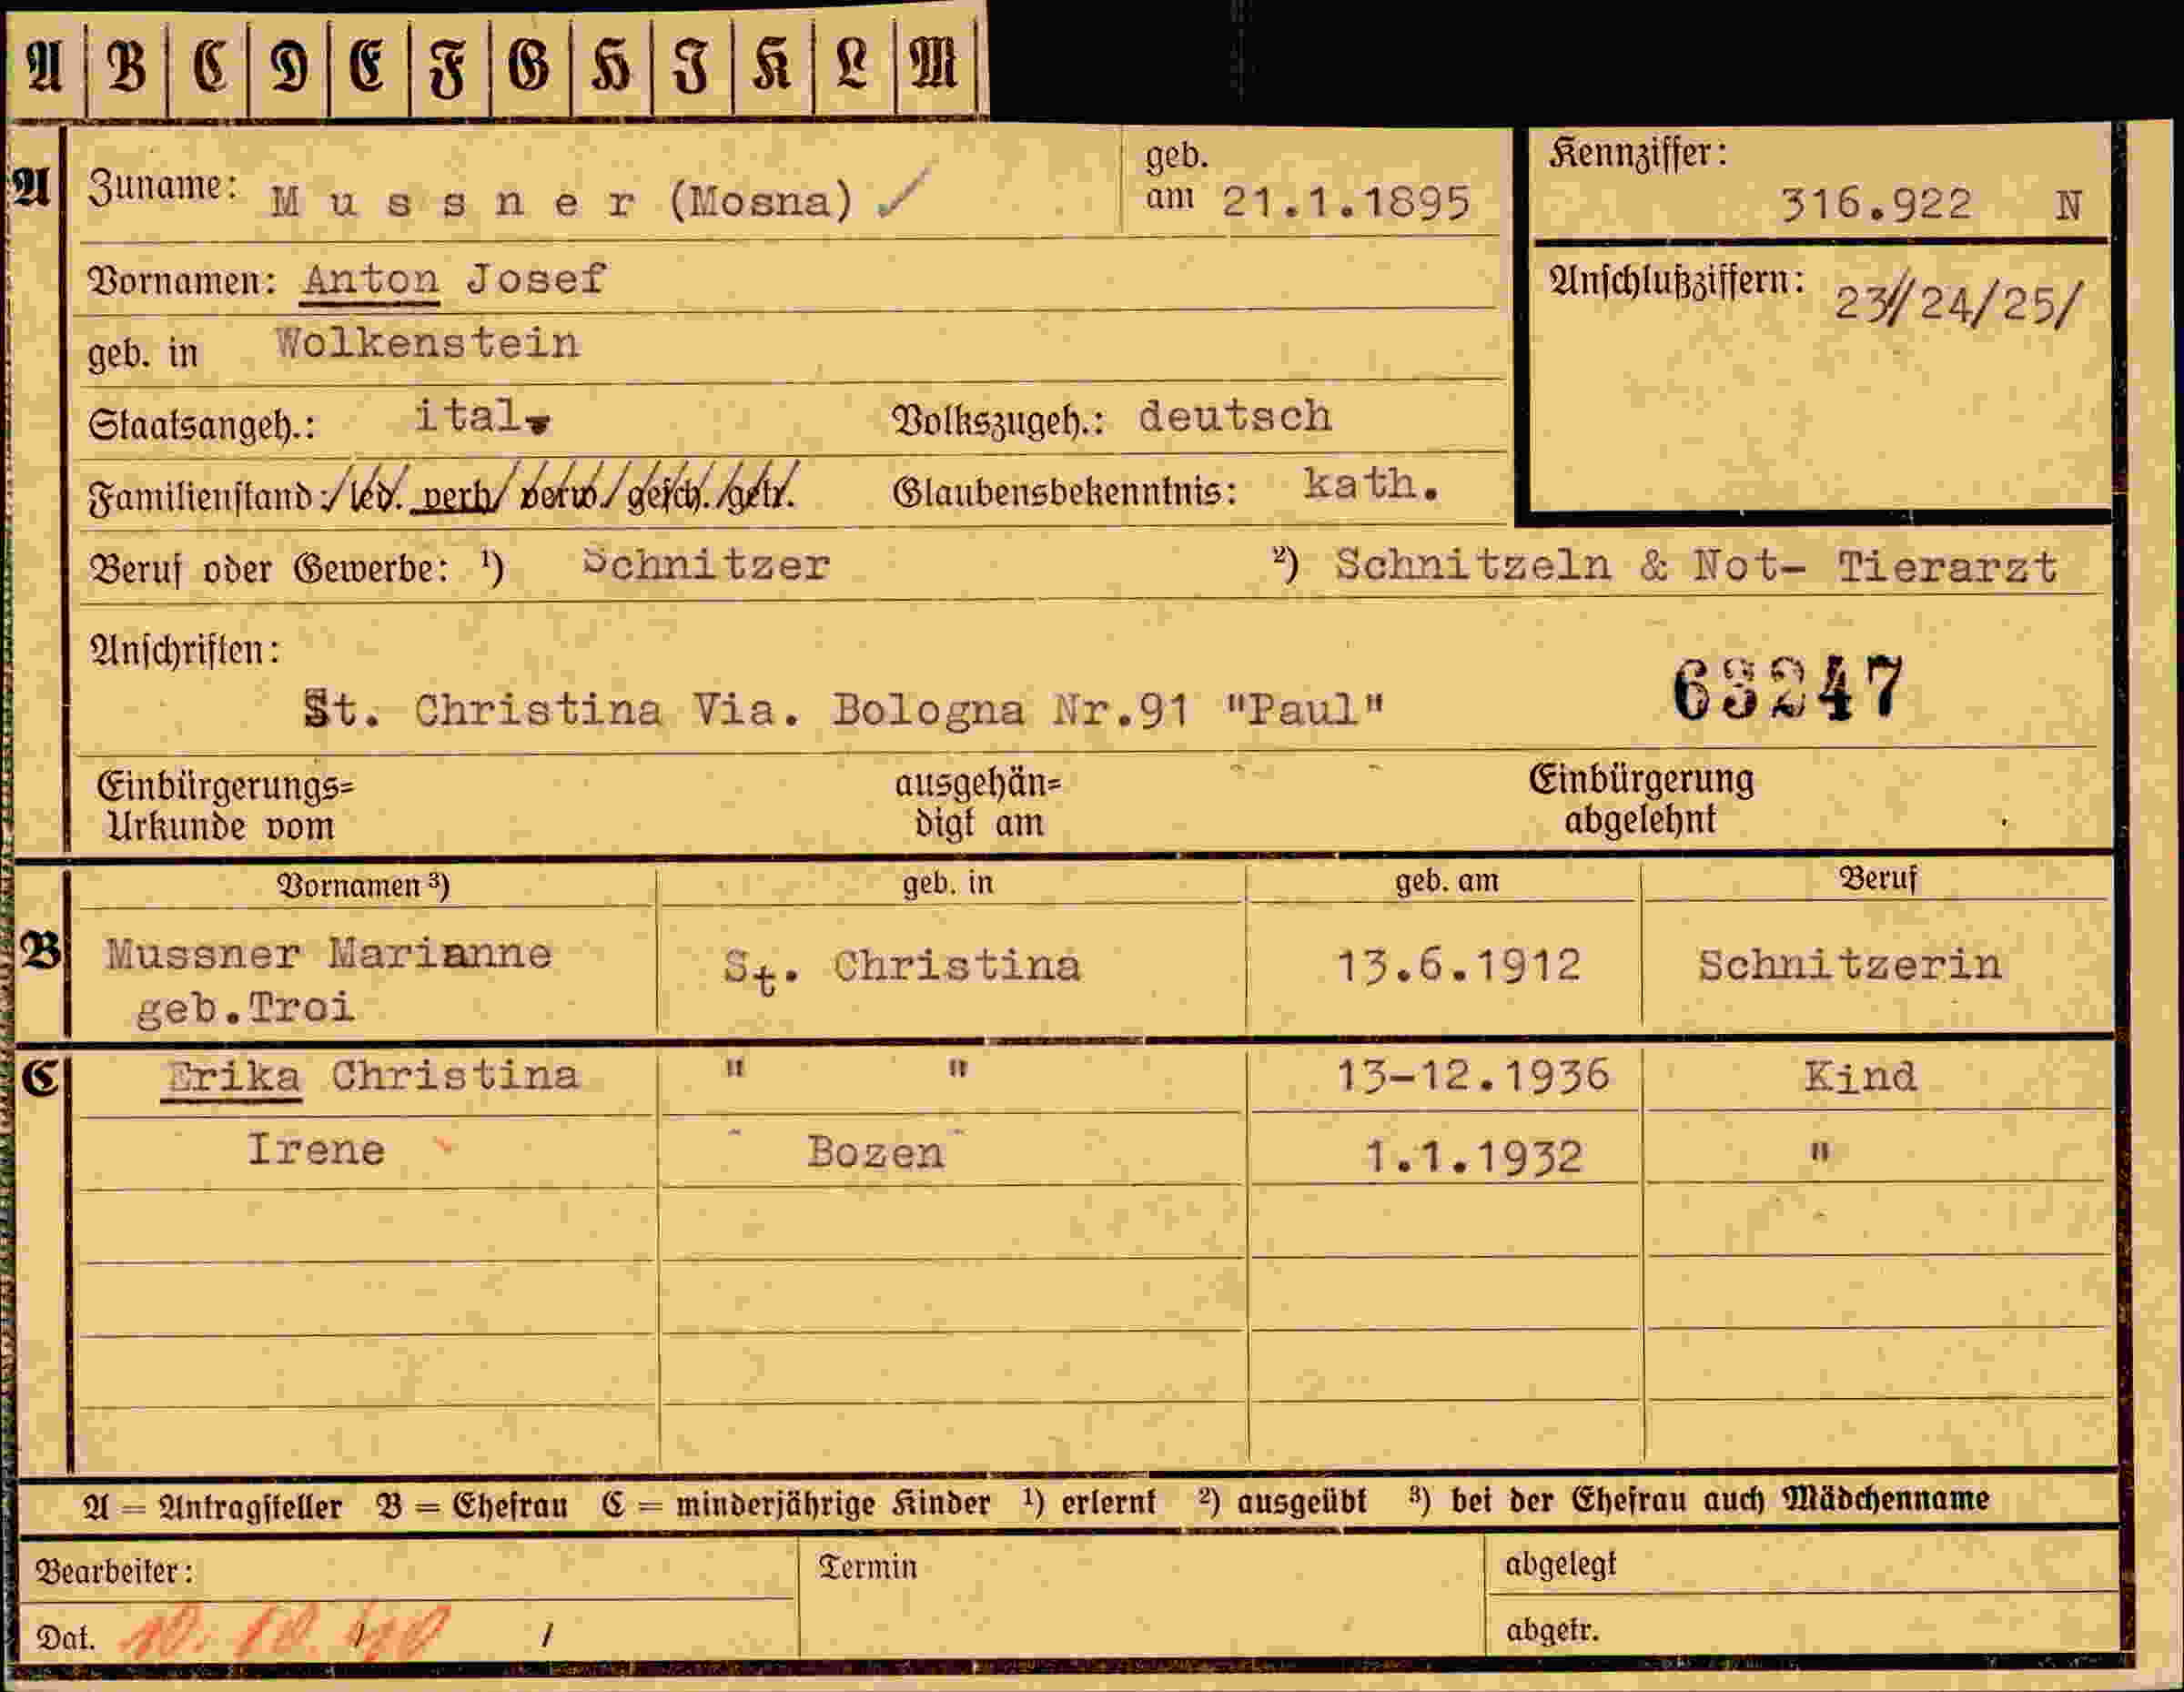 A B C D E F G H I K L M
A Zuname: Mussner (Mosna) geb. am 21.1.1895 Kennziffer: 316.922 N
Vornamen: Anton Josef Anschlußziffern: 23//24/25/
geb. in Wolkenstein
Staatsangeh.: ital. Volkszugeh.: deutsch
Familienstand: led. verh. verw. gesch. getr. Glaubensbekenntnis: kath.
Beruf oder Gewerbe: ¹) Schnitzer ²) Schnitzeln & Not- Tierarzt
Anschriften:
St. Christina Via. Bologna Nr.91 "Paul" 63247
Einbürgerungs= ausgehän= Einbürgerung
Urkunde vom digt am abgelehnt
Vornamen ³) geb. in geb. am Beruf
B Mussner Marianne St. Christina 13.6.1912 Schnitzerin
geb.Troi
C Erika Christina " " 13-12.1936 Kind
Irene Bozen 1.1.1932 "
A = Antragsteller B = Ehefrau C = minderjährige Kinder ¹) erlernt ²) ausgeübt ³) bei der Ehefrau auch Mädchenname
Bearbeiter: Termin abgelegt
Dat. 10. 10. 40 / abgetr.